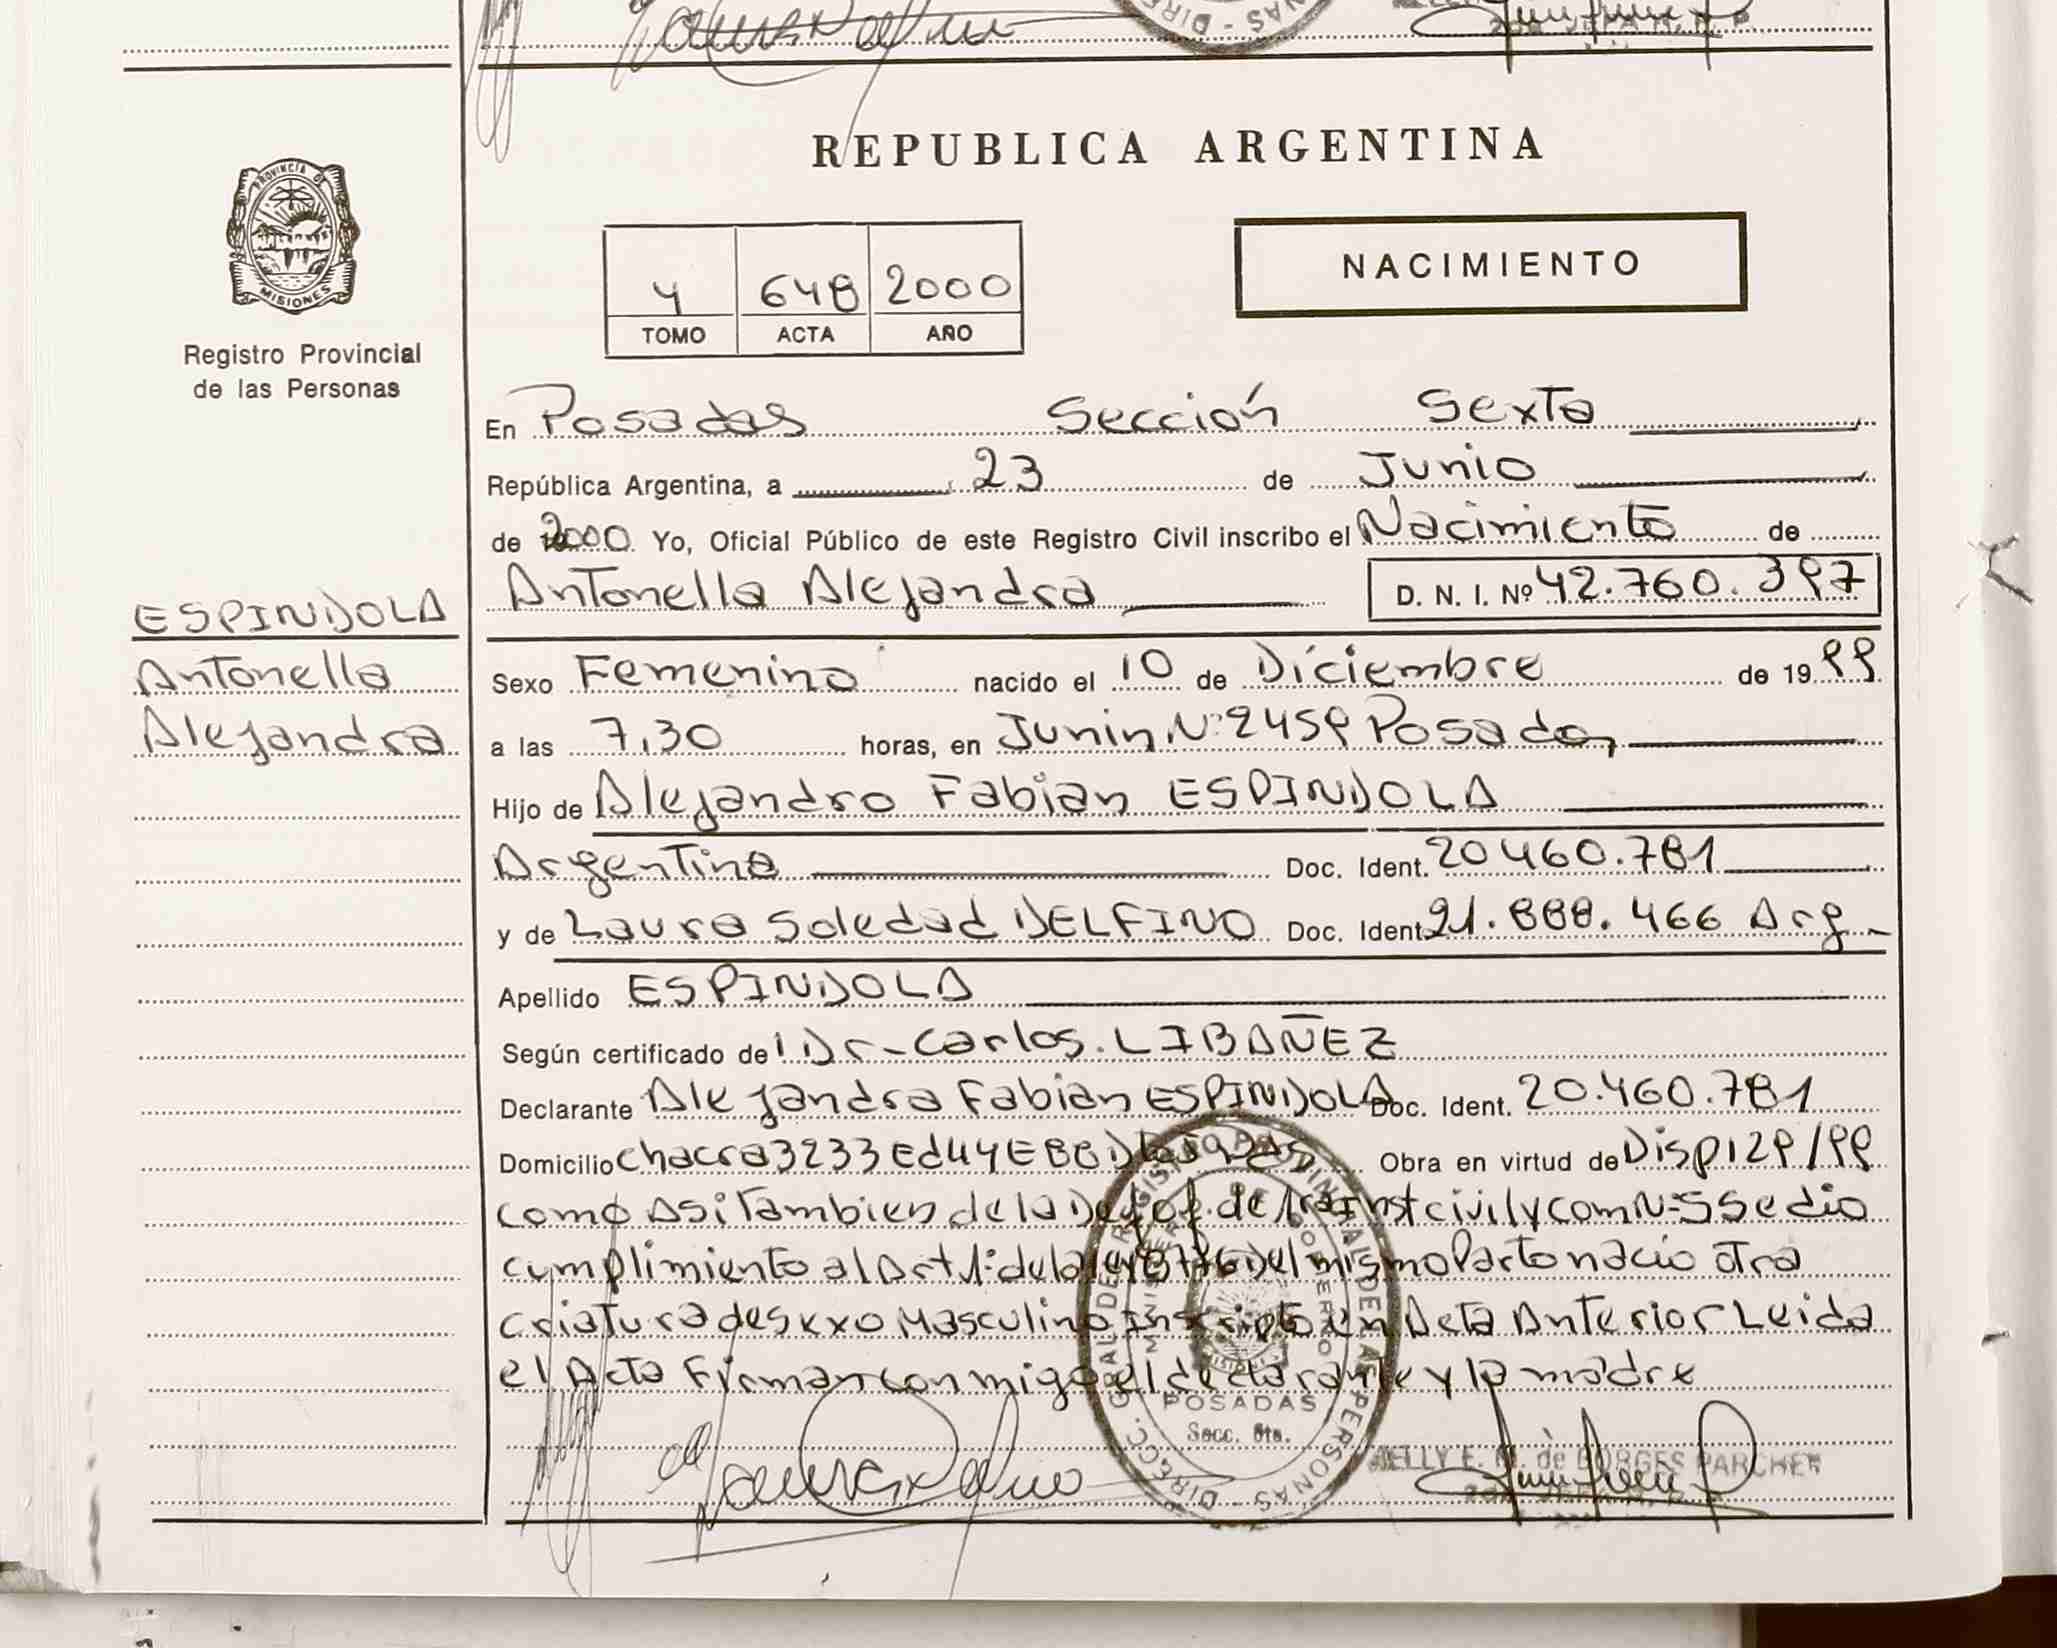 REPUBLICA ARGENTINA
PROVINCIA DE
MISIONES
Registro Provincial
de las Personas
4 648 2000
TOMO ACTA AÑO
NACIMIENTO
En Posadas Sección Sexta
República Argentina, a 23 de Junio
de 2000 Yo, Oficial Público de este Registro Civil inscribo el Nacimiento de
Antonella Alejandra D. N. I. Nº 42.760.397
ESPINDOLA
Antonella
Alejandra
Sexo Femenino nacido el 10 de Diciembre de 1999
a las 7,30 horas, en Junin Nº 2459 Posadas
Hijo de Alejandro Fabian ESPINDOLA
Argentino Doc. Ident. 20460.781
y de Laura Soledad DELFINO Doc. Ident. 21.888.466 Arg.
Apellido ESPINDOLA
Según certificado de Dr-Carlos. LIBAÑEZ
Declarante Alejandra Fabian ESPINDOLA Doc. Ident. 20.460.781
Domicilio Chacra 3233 Ed 44 E Obra en virtud de Disp 129/99
como asi Tambien de la de Inst civil y com Nº 5 Se dio
cumplimiento al Art 1º de la Del mismo Parto nacio otra
criatura de sexo Masculino Inscripto en Acta Anterior Leida
el Acta Firman conmigo el declarante y la madre
DIRECC. GRAL DEL REGISTRO PROVINCIAL DE LAS PERSONAS
MINISTERIO DE GOBIERNO
MISIONES
POSADAS
Secc. 6ta.
NELLY E. M. de BORGES PARCHER